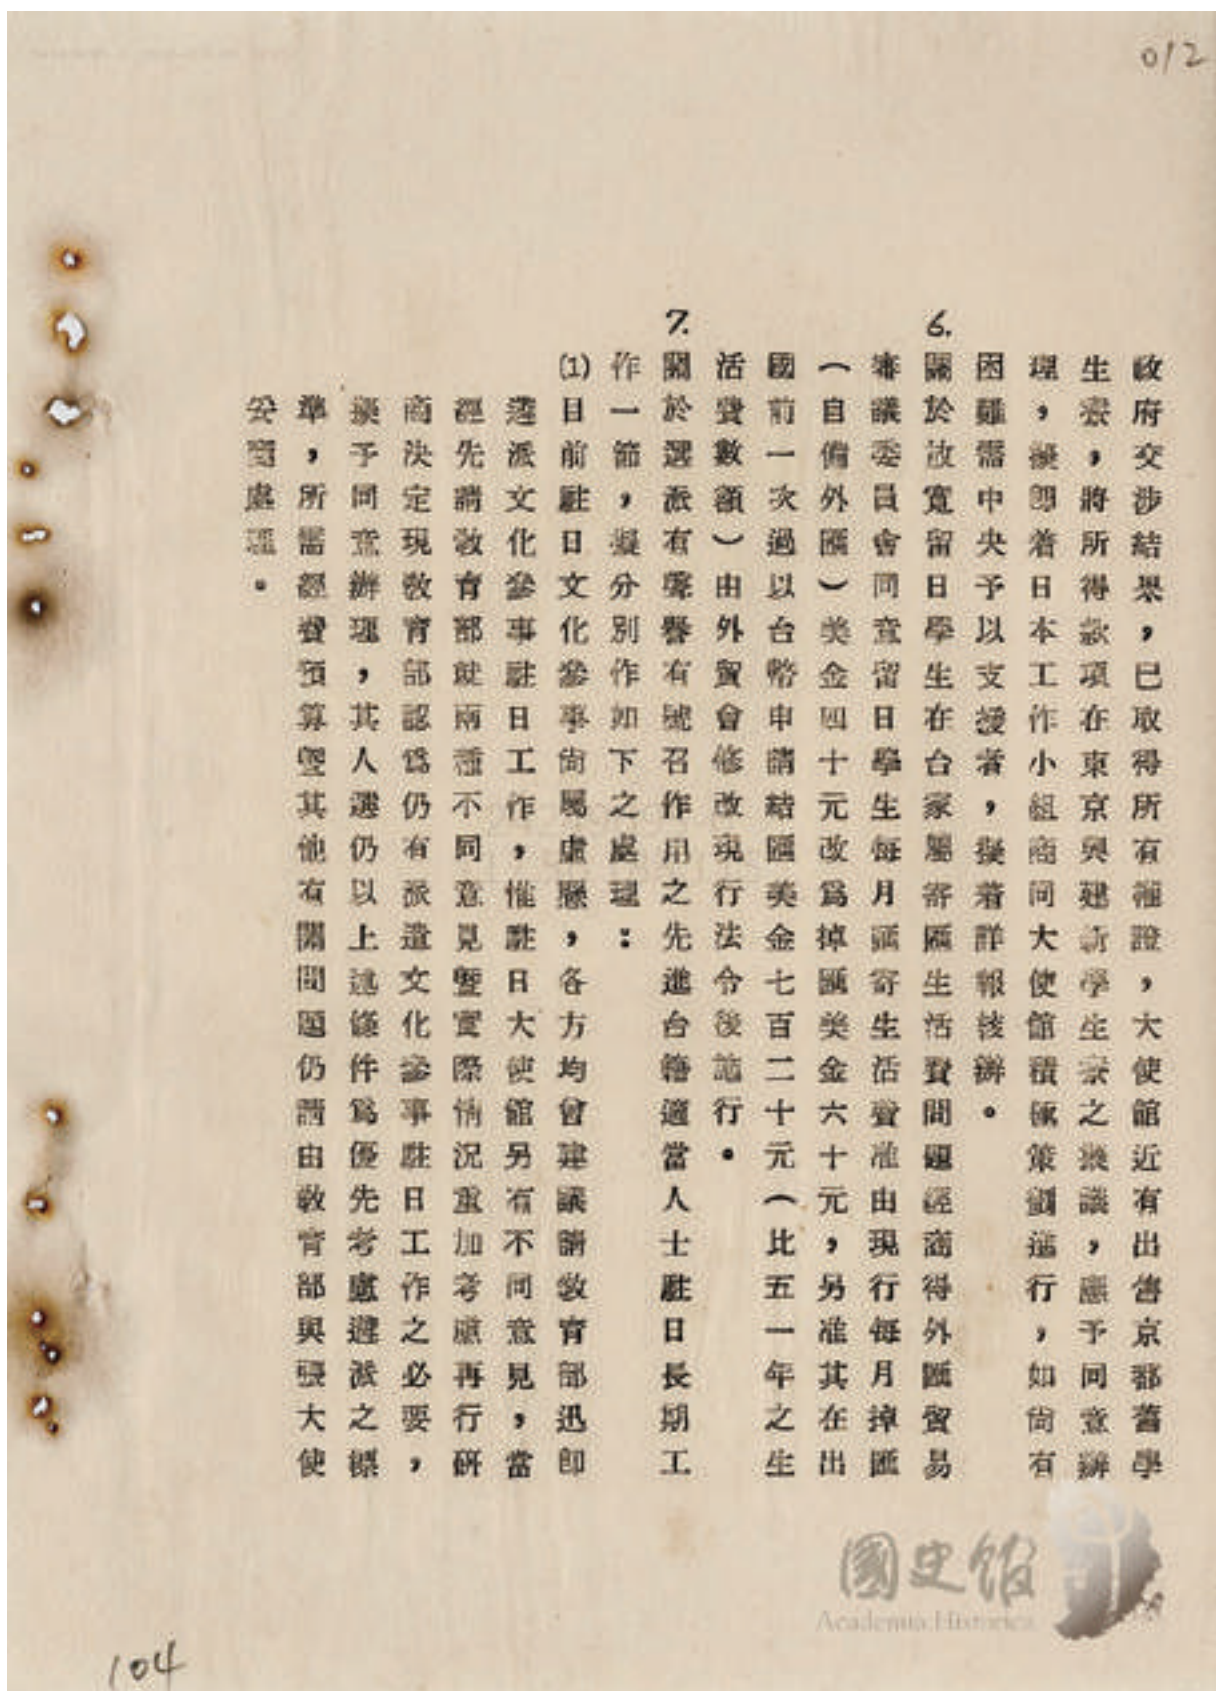 012
政府交涉結果，已取得所有權證，大使館近有出售京都舊學
生寮，將所得款項在東京興建新學生寮之擬議，應予同意辦
理，擬即着日本工作小組商同大使館積極策劃進行，如尚有
困難需中央予以支援者，擬着詳報核辦。
6.關於放寬留日學生在台家屬寄匯生活費問題經商得外匯貿易
審議委員會同意留日學生每月匯寄生活費准由現行每月掉匯
（自備外匯）美金四十元改爲掉匯美金六十元，另准其在出
國前一次過以台幣申請結匯美金七百二十元（比五一年之生
活費數額）由外貿會修改現行法令後施行。
7.關於選派有聲譽有號召作用之先進台籍適當人士駐日長期工
作一節，擬分別作如下之處理：
(1)目前駐日文化參事尙屬虛懸，各方均會建議請敎育部迅卽
遴派文化參事駐日工作，惟駐日大使館另有不同意見，當
經先請敎育部就兩種不同意見曁實際情況重加考慮再行硏
商決定現敎育部認爲仍有派遣文化參事駐日工作之必要，
擬予同意辦理，其人選仍以上述條件爲優先考慮遴派之標
準，所需經費預算曁其他有關問題仍請由敎育部與張大使
妥商處理。
國史館
Academia Historica
104